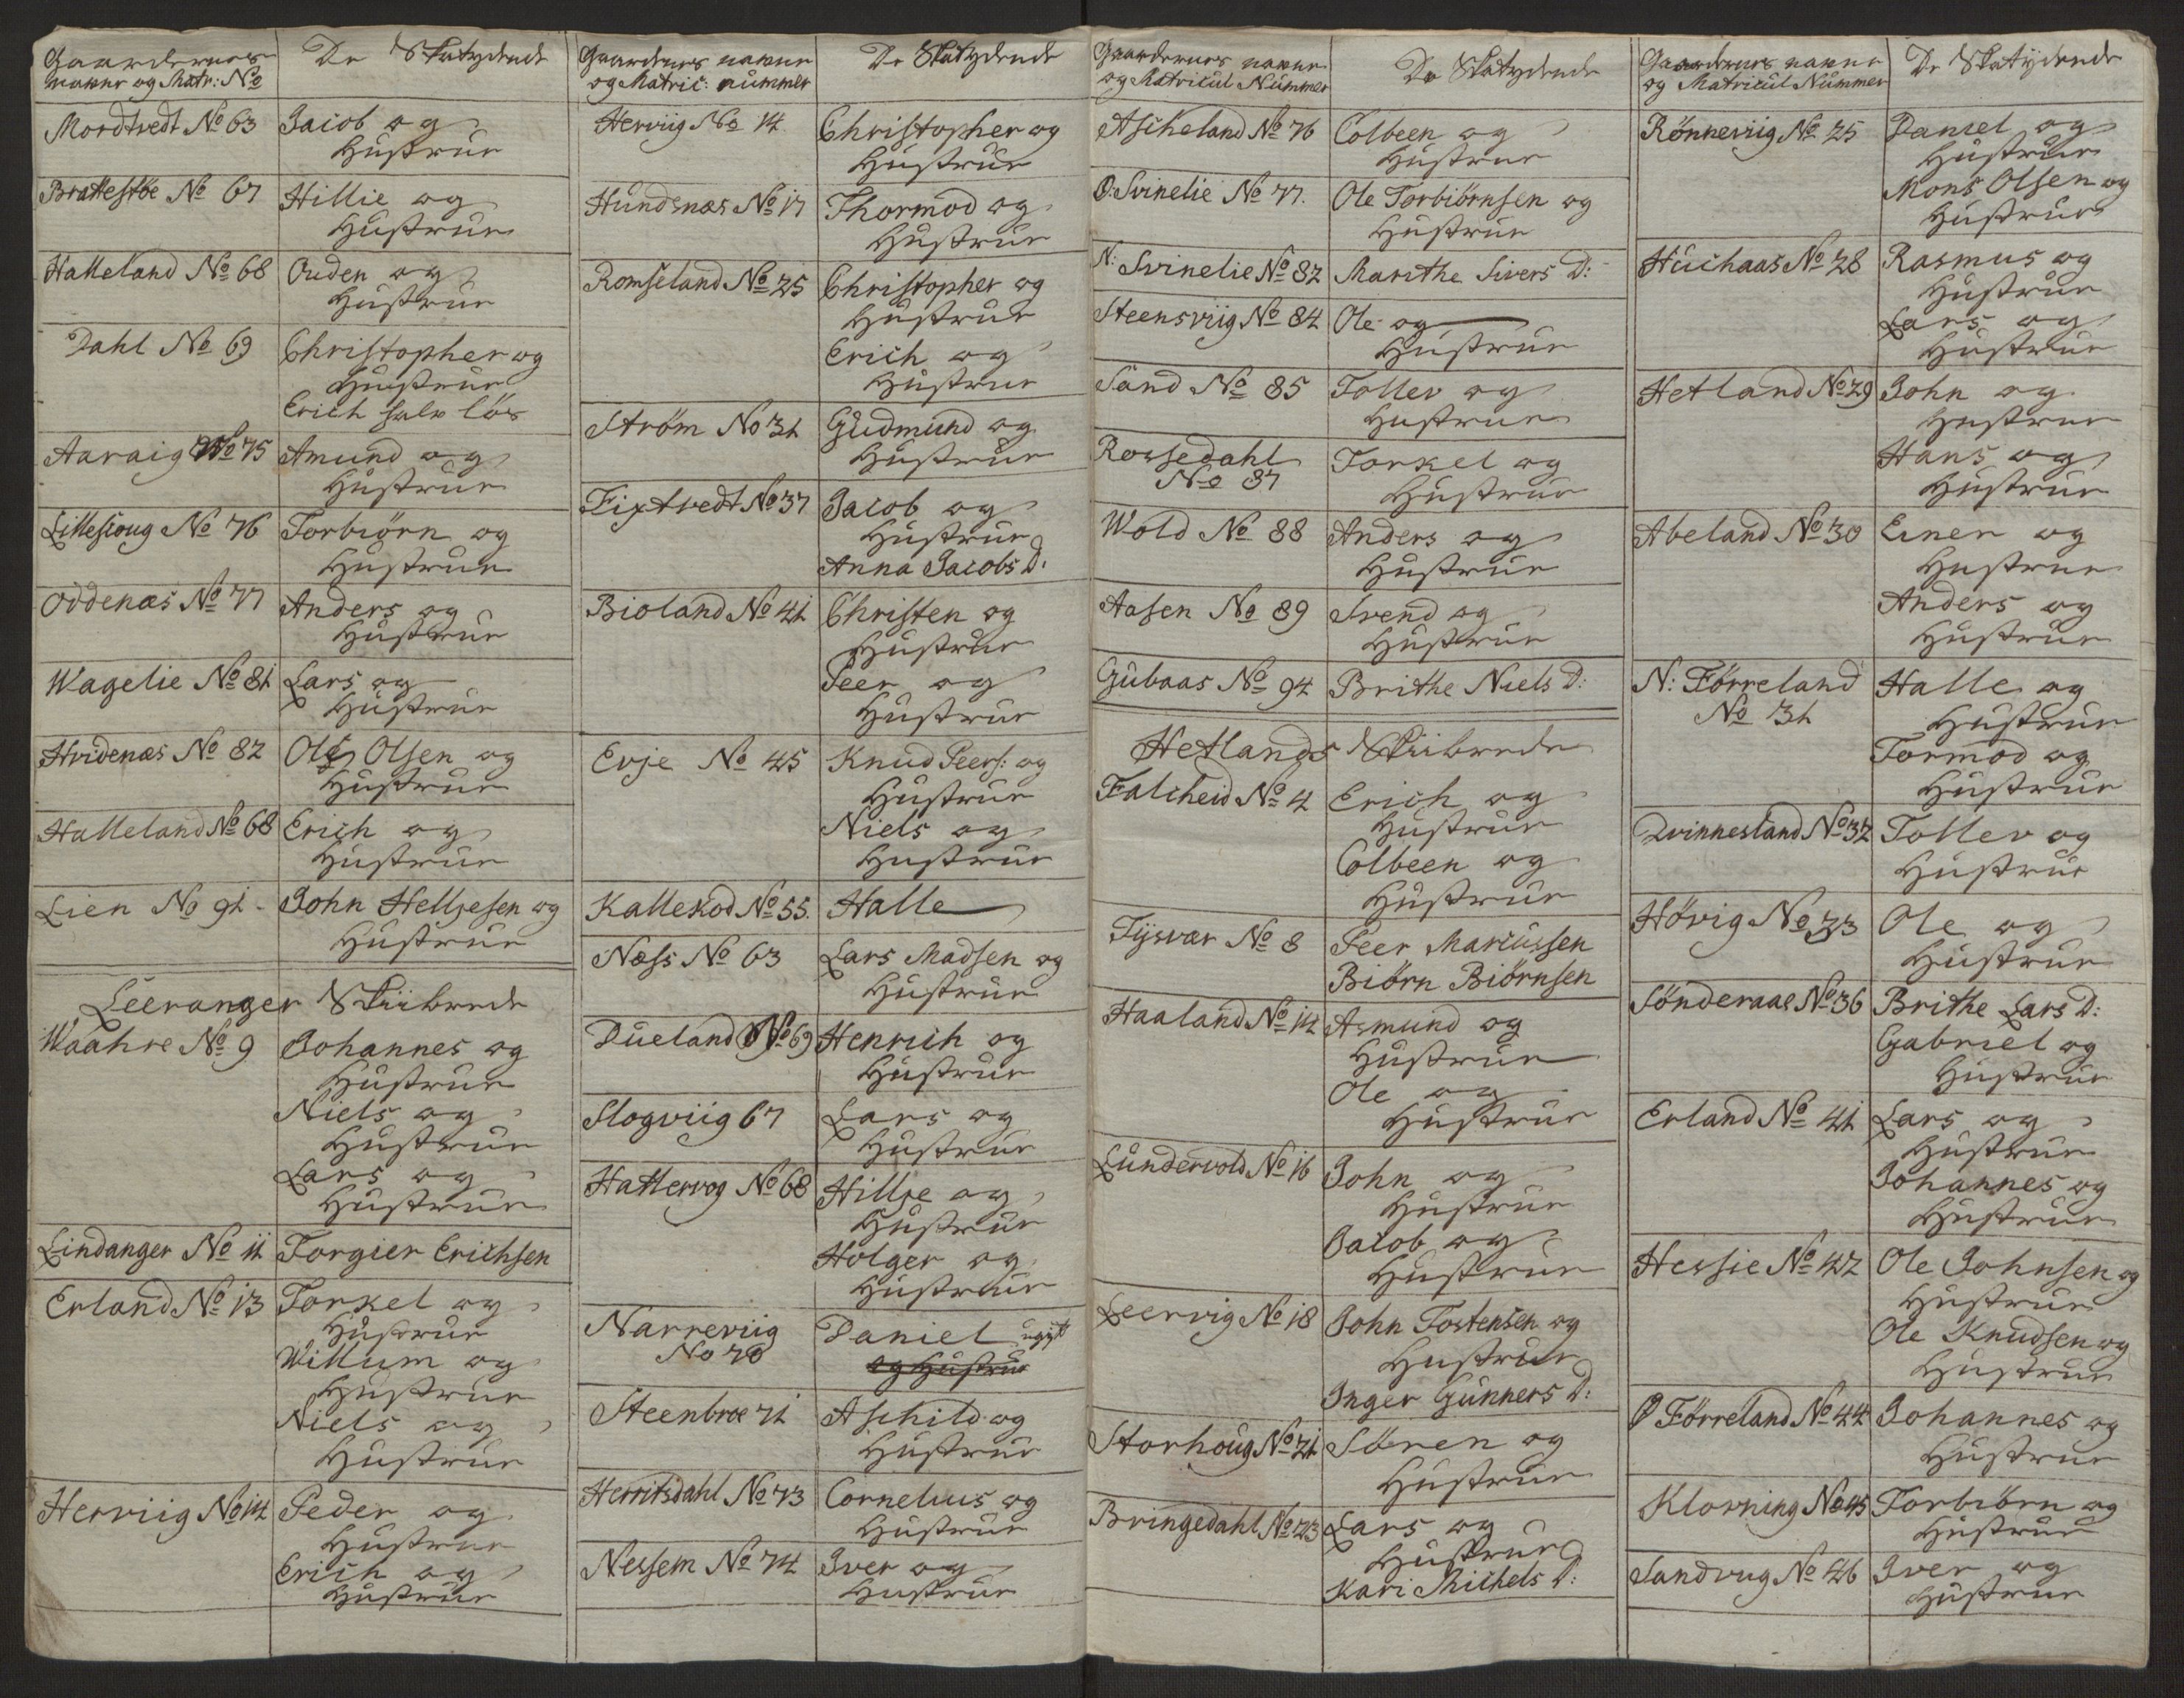 Gaardernes De Skatydende
navne og Matr: No
Mordtvedt No 63 Jacob og
Hustrue
Brattestöe No 67 Hillie og
Hustrue
Halleland No 68 Ouden og
Hustrue
Dahl No 69 Christopher og
Hustrue
Erich halv lös
Aaraig No 75 Amund og
Hustrue
Lillesioug No 76 Torbiørn og
Hustrue
Oddenæs No 77 Anders og
Hustrue
Wagelie No 81 Lars og
Hustrue
Hvidenæs No 82 Ole Olsen og
Hustrue
Halleland No 68 Erich og
Hustrue
Lien No 91 John Helljesen og
Hustrue
Leeranger Skiibrede
Waahre No 9 Johannes og
Hustrue
Niels og
Hustrue
Lars og
Hustrue
Lindanger No 11 Torgier Erichsen
Erland No 13 Torkel og
Hustrue
Willum og
Hustrue
Niels og
Hustrue
Herviig No 14 Peder og
Hustrue
Erich og
Hustrue
Gaardenes navne De Skatydende
og Matric: nummer
Herviig No 14 Christopher og
Hustrue
Hundsnæs No 17 Thormod og
Hustrue
Romseland No 25 Christopher og
Hustrue
Erich og
Hustrue
Strøm No 31 Gudmund og
Hustrue
Tixtvedt No 37 Jacob og
Hustrue
Anna Jacobs D:
Bioland No 41 Christen og
Hustrue
Peer og
Hustrue
Evje No 45 Knud Peers: og
Hustrue
Niels og
Hustrue
Kallekod No 55. Halle
Næss No 63 Lars Madsen og
Hustrue
Dueland No 69 Henrich og
Hustrue
Slogviig 67 Lars og
Hustrue
Hattervog No 68 Hillje og
Hustrue
Holger og
Hustrue
Narreviig Daniel ugift
No 70 og Hustrue
Steenbroe 71 Aschild og
Hustrue
Herritsdahl No 73 Cornelius og
Hustrue
Nessem No 74 Iver og
Hustrue
Gaardernes navne De Skatydende
og Matricul Nummer
Ascheland No 76 Colbeen og
Hustrue
O: Svinelie No 77. Ole Torbiörnsen og
Hustrue
N: Svinelie No 82 Marithe Sivers D:
Steensviig No 84 Ole og
Hustrue
Sand No 85 Tollev og
Hustrue
Rossedahl Torkel og
No 87 Hustrue
Wold No 88 Anders og
Hustrue
Aasen No 89 Svend og
Hustrue
Gubaas No 94 Brithe Niels D:
Hetlands Skiibrede
Falcheid No 4 Erich og
Hustrue
Colbeen og
Hustrue
Tysvær No 8 Peer Marcussen
Biörn Biörnsen
Haaland No 14 Asmund og
Hustrue
Ole og
Hustrue
Lundervold No 16 John og
Hustrue
Jacob og
Hustrue
Leervig No 18 John Tostensen og
Hustrue
Inger Gunners D:
Storhoug No 21 Sören og
Hustrue
Bringedahl No 23 Lars og
Hustrue
Kari Michels D:
Gaardernes navne De Skatydende
og Matricul Nummer
Rönneviig No 25 Daniel og
Hustrue
Mons Olsen og
Hustrue
Huchaas No 28 Rasmus og
Hustrue
Lars og
Hustrue
Hetland No 29 John og
Hustrue
Hans og
Hustrue
Abeland No 30 Einer og
Hustrue
Anders og
Hustrue
N: Førreland Halle og
No 31 Hustrue
Tormod og
Hustrue
Qvinnesland No 32 Tollev og
Hustrue
Høvig No 33 Ole og
Hustrue
Sønderaae No 36 Brithe Lars D:
Gabriel og
Hustrue
Erland No 41 Lars og
Hustrue
Johannes og
Hustrue
Hessie No 42 Ole Johnsen og
Hustrue
Ole Knudsen og
Hustrue
O Førreland No 44 Johannes og
Hustrue
Klovning No 45 Torbiörn og
Hustrue
Sandvug No 46 Iver og
Hustrue